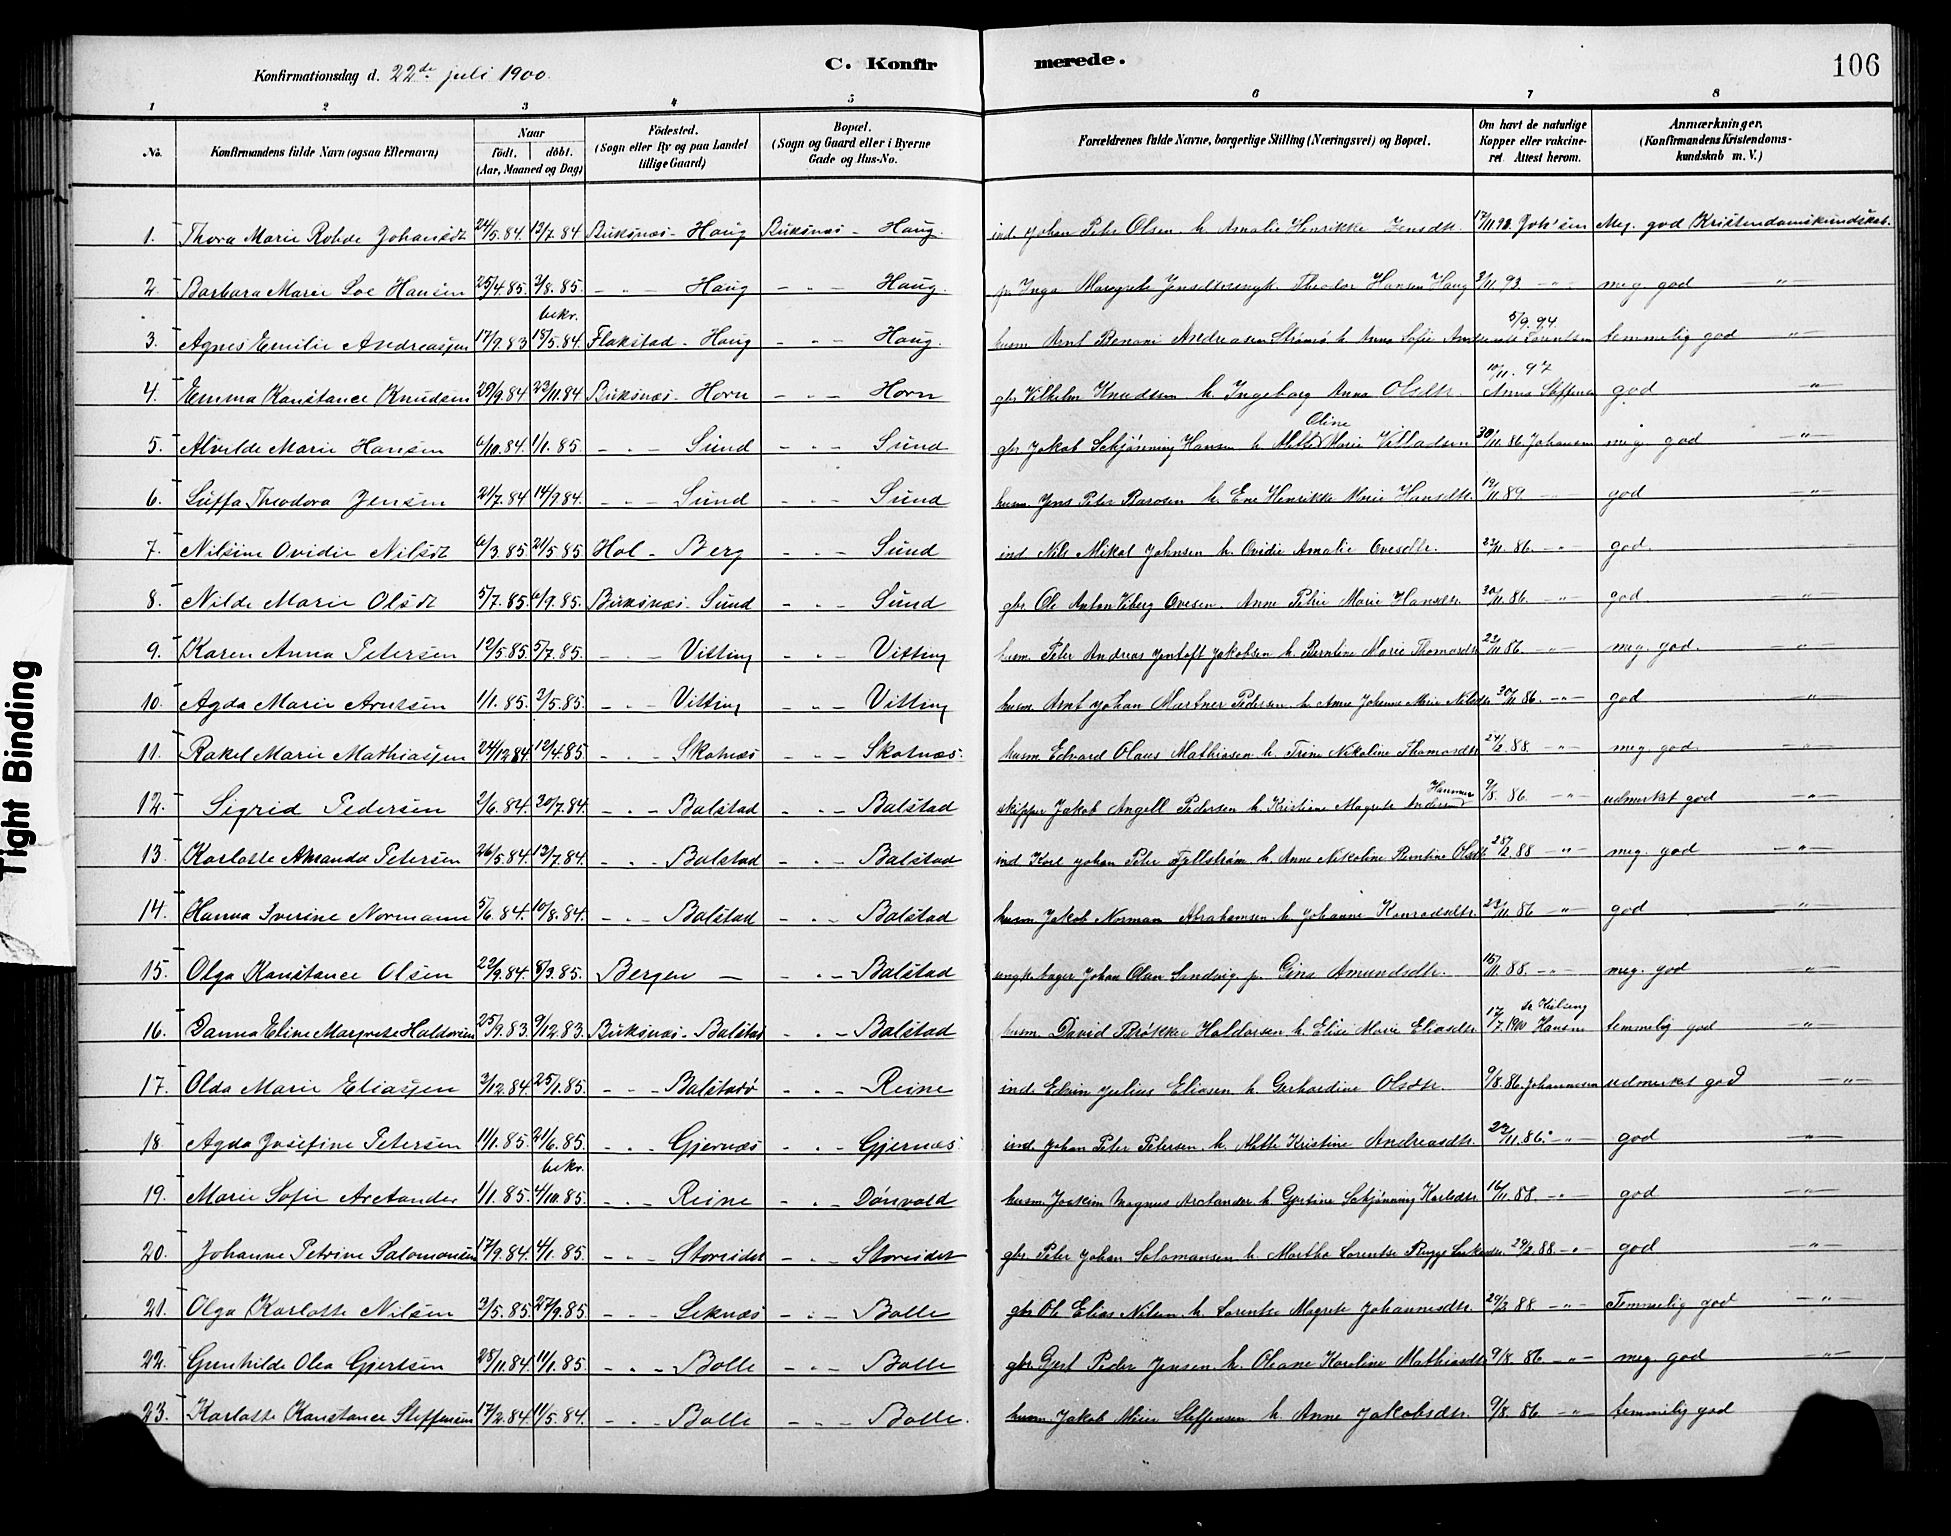 Konfirmationsdag d. 22de juli 1900. C. Konfirmerede. 106
1 2 3 4 5 6 7 8
No. Konfirmandens fulde Navn (ogsaa Efternavn) Naar født. døbt. (Aar, Maaned og Dag) Födested. (Sogn eller By og paa Landet tillige Gaard) Bopæl. (Sogn og Gaard eller i Byerne Gade og Hus-No. Forældrenes fulde Navne, borgerlige Stilling (Næringsvei) og Bopæl. Om havt de naturlige Kopper eller vakcineret Attest herom. Anmærkninger. (Konfirmandens Kristendomskundskab m. V.)
1. Thora Marie Rohde Johansdt 24/5.84. 13/7.84 Buksnæs - Haug Buksnæs - Haug. ind. Johan Peter Olsen h. Amalie Henrikke Jensdtr. 17/11.90. Joh'sen Meg. god Kristendomskundskab.
2. Barbara Marie Soe Hansen 25/4.85. 2/8.85. - " - Haug - " - Haug. Inga Margrete Theodor Hansen Haug 3/11.93 - " - meg. god - " -
bekr.
3. Agnes Emilie Andreassen 17/9.83 18/5.84. Flakstad - Haug - " - Haug. husm Arnt Benoni Andreasen Strømø h. Anna Sofie 5/9.94. Lorentsen temmelig god - " -
4. Emma Konstance Knudsen 29/9.84 23/11.84 Buksnæs - Horn - " - Horn gbr. Vilhelm Knudsen h. Ingeborg Anna Olsdtr. 10/11.97 Anna Steffensen god "
5. Alvilde Marie Hansen 6/10.84. 1/1.85. - " - Sund - " - Sund gbr Jakob Schjønning Hansen h. Mette Oline Marie Villadsen 30/11.86 Johansen meg. god - " -
6. Suffa Theodora Jensen 21/7.84 14/9.84. - " - Sund - " - Sund husm. Jens Peter h. Ene Henrikke Marie Hansdtr. 19/11.89 - " - god - " -
7. Nilsine Ovidie Nilsdt 6/3.85 21/5.85 Hol - Berg - " - Sund ind Nils Mikal Johnsen h. Ovidie Amalie Ovesdtr. 23/11.86. - " - god.
8. Nilde Marie Olsdt 5/7.85. 6/9.85. Buksnæs - Sund - " - Sund gbr. Ole Anton Viberg Ovesen. Anne Petrie Marie Hansdtr. 30/11.86. - " - god - " -
9. Karen Anna Petersen 12/5.85. 5/7.85. - " - Vitting - " - Vitting husm. Peter Andreas Jentoft Jakobsen h. Berntine Marie Thomasdtr 23/11.86. - " - meg. god. "
10. Agda Marie Arntsen 1/1.85. 3/5.85. - " - Vitting - " - Vitting husm Arnt Johan Martner Pedersen h. Anne Johanne Marie Nilsdtr 30/11.86. - " - god - " -
11. Rakel Marie Mathiassen 24/12.84. 12/4.85. - " - Skotnæs - " - Skotnæs. husm Edvard Olaus Mathiasen h. Trine Nikoline Thomasdtr 24/2.88. - " - meg god - " -
12. Sigrid Pedersen 2/6.84. 20/7.84. - " - Balstad - " - Balstad skipper Jakob Angell Pedersen h. Kristine Magrete Andersen Hammer 9/8.86. - " - udmerket god - " -
13. Karlotte Amanda Petersen 26/5.84. 13/7.84. - " - Balstad - " - Balstad ind Karl Johan Peter Fjellstrøm h. Anne Nikoline Berntine Olsdtr. 28/2.88 - " - meg. god - " -
14. Hanna Iverine Normann 5/6.84. 10/8.84. - " - Balstad - " - Balstad husm Jakob Norman Abrahamsen h. Johanne Konradsdtr. 23/11.86 - " - god - " -
15. Olga Konstance Olsen 22/9.84. 8/3.85. Bergen - - " - Balstad ungk. bager Johan Olsen Sandvig p. Gina Amundsdtr. 15/11.88. - " - meg. god - " -
16. Danna Eline Margrete Haldorsen 25/9.83. 9/12.83. Buksnæs - Balstad - " - Balstad husm. David Brökke Haldorsen h. Elise Marie Eliasdtr 17/7.1900 Hansen temmelig god "
17. Olda Marie Eliassen 3/12.84. 25/1.85. - " - Balstad - " - Reine ind. Edvin Julius Eliasen h. Gerhardine Olsdtr. 9/8.86. Johannesen udmerket god - " -
18. Agda Josefine Petersen 11/1.85. 21/6.85. - " - Gjernæs - " - Gjernæs. ind. Johan Peter Petersen. h. Mette Kristine Andreasdtr. 23/11.86. - " - god - " -
bekr.
19. Marie Sofie Arctander 1/1.85. 4/10.85. - " - Reine - " - Dønvold husm. Joakim Magnus Arctander h. Gjertine Schjønning Karlsdtr 16/11.88 - " - god - " -
20. Johanne Petrine Salomonsen 17/9.84. 4/1.85. - " - Storeidet - " - Storeidet gbr. Peter Johan Salomonsen h. Martha Lorentse Bugge 29/2.88. - " - god - " -
21. Olga Karlotte Nilsen 3/5.85. 27/9.85. - " - Leknæs - " - Bolle gbr. Ole Elias Nilsen h. Lorentse Magrete Johannesdtr. 29/2.88 - " - Temmelig god - " -
22. Gunhilde Olea Gjertsen 28/11.84. 11/1.85. - " - Bolle - " - Bolle gbr. Gjert Peder Jensen h. Oleane Karoline Mathiasdtr 9/8.86 - " - meg. god - " -
23. Karlotte Konstance Steffensen 17/2.84. 11/5.84. - " - Bolle - " - Bolle. husm. Jakob Meier Steffensen h. Anne Jakobsdtr. 9/8.86 - " - temmelig god
Tight Binding